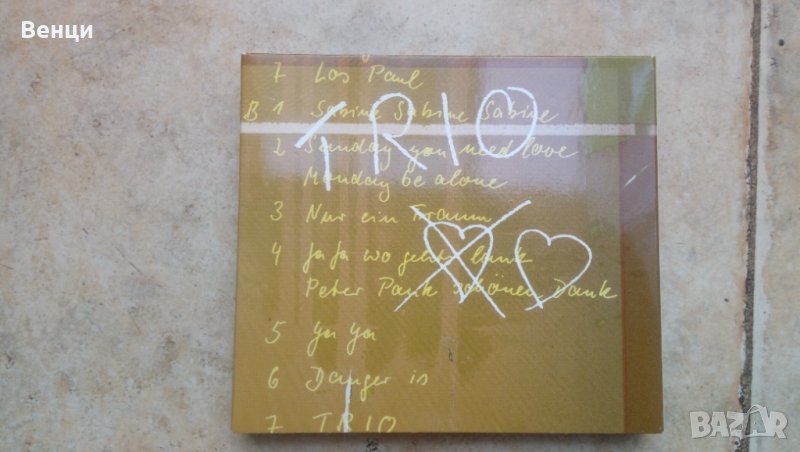 Венци
7 Los Paul
B 1 Sabine Sabine Sabine
TRIO
2 Sunday you need love
Monday be alone
3 Nur ein Traum
4 Ja Ja wo gehts lank
Peter Pank schönen Dank
5 Ya Ya
6 Danger is
7 TRIO
BAZAR